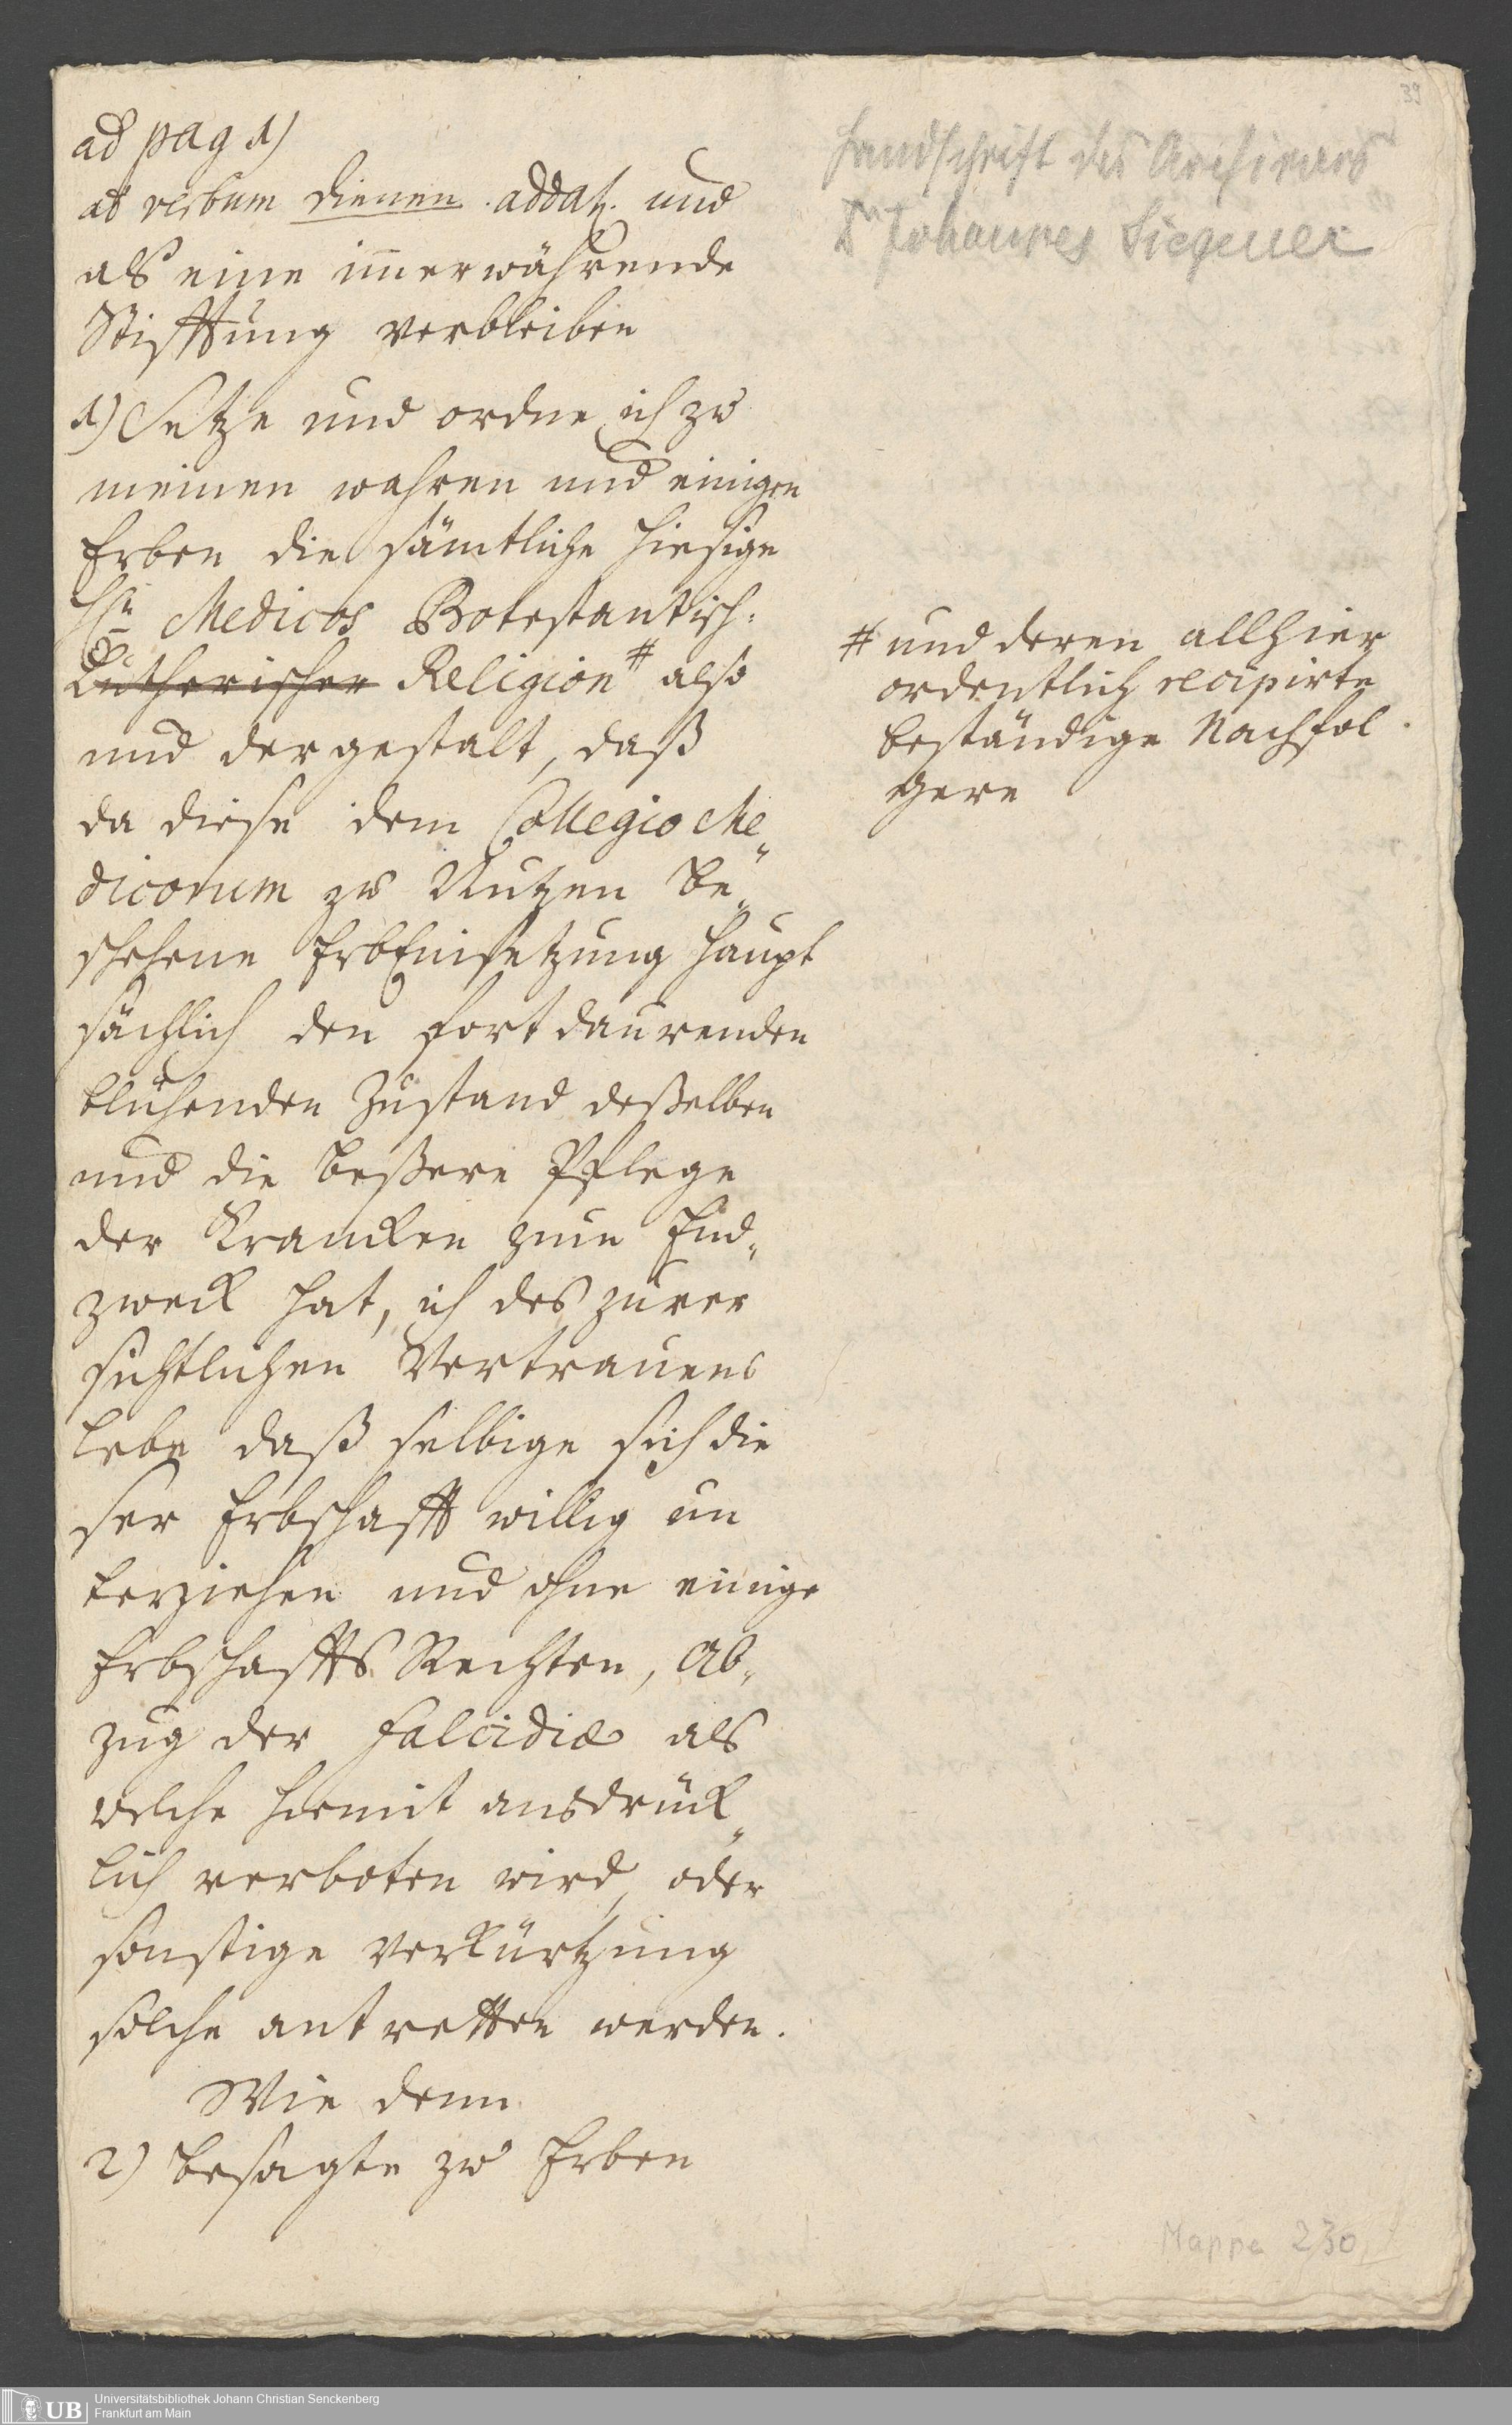 39
Handschrift des Archivars
Dr Johannes Siegener
ad pag 1)
ad verbum dienen. addatr. und
als eine im̄erwährende
Stifftung verbleiben
1) Setze und ordne ich zu
meinen wahren und einigen
Erben die sämtliche hiesige
Hn Medicos Protestantisch-
Lutherischer Religion # also
und dergestalt, daß
da diese dem Collegio Me„
dicorum zu Nutzen be„
schehene ErbEinsetzung haupt
sächlich den fortdaurenden
blühenden Zustand deßelben
und die beßere Pflege
der Krancken zum End„
zweck hat, ich des zuver
sichtlichen Vertrauens
lebe daß selbige sich die
ser Erbschafft willig un
terziehen und ohne einige
Erbschaffts Rechten, Ab„
zug der Falcidiæ als
welche hiemit ausdrück„
lich verboten wird, oder
sonstige Verkürtzung
solche antretten werden.
Wie denn
2) besagte zu Erben
# und deren allhier
ordentlich recipirte
beständige Nachfol
gere
Mappe 230
UB
Universitätsbibliothek Johann Christian Senckenberg
Frankfurt am Main